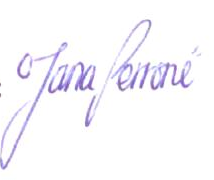 Jana Perroné